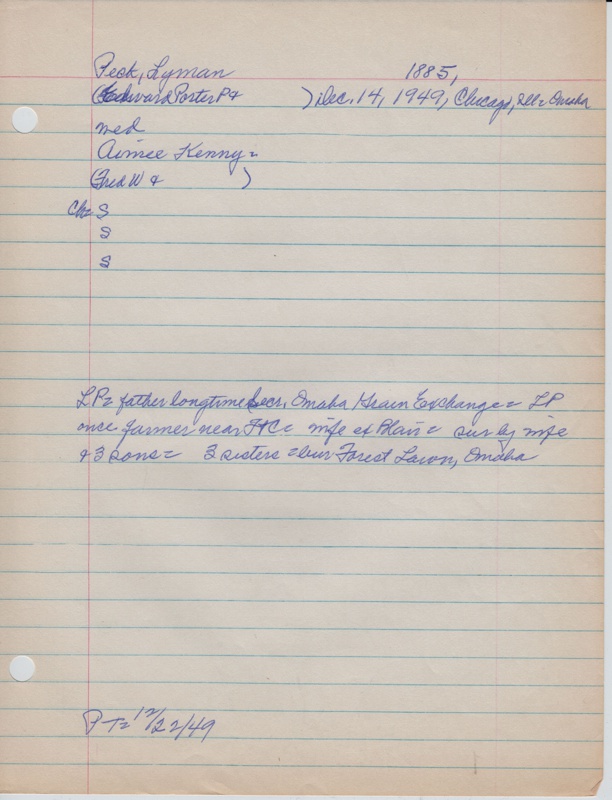 Peck, Lyman 1885,
(Edward Porter P & ) Dec. 14, 1949, Chicago, Ill = Omaha
med
Aimee Kenny =
(Fred W & )
Ch = S
S
S
LP = father longtime secr. Omaha Grain Exchange = LP
once farmer near FtC = wife ex Blair = sur by wife
& 3 sons = 3 sisters = bur Forest Lawn, Omaha
P T = 12/22/49